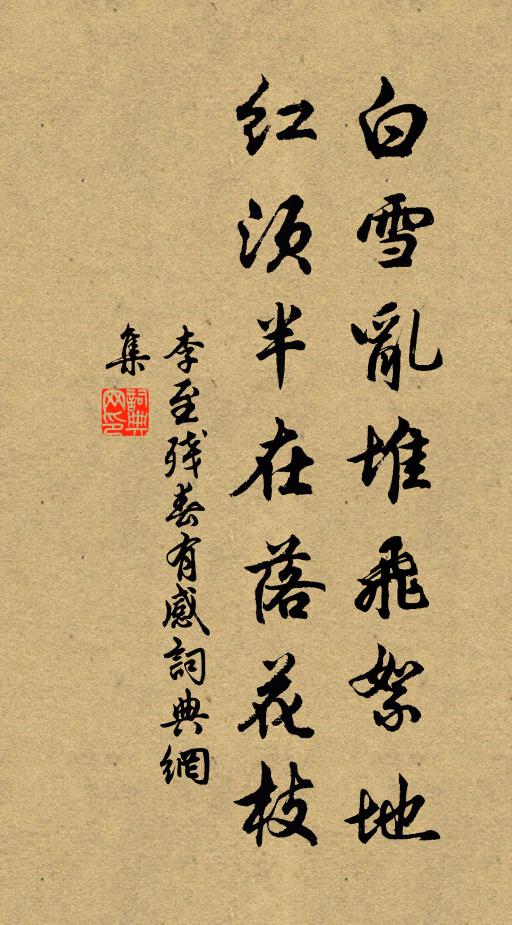 白雪亂堆飛絮地
紅須半在落花枝
李至殘春有感詞典網
集
詞典
网印